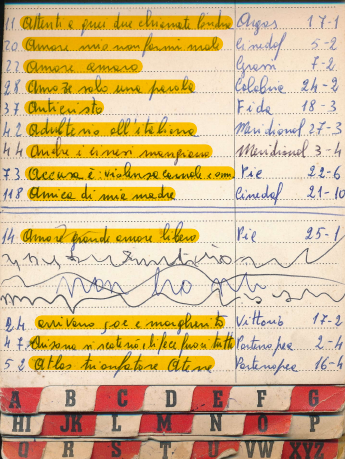 11 Attenti a quei due chiamate Londra Argos 17-1
20 Amore mio non farmi male Cinedaf 5-2
22 Amore amaro Gravi 7-2
28 Amore solo una parola Colobus 24-2
37 Anticristo Fida 18-3
42 adulterio all'italiana Meridional 27-3
44 Anche i cinesi mangiano Meridional 3-4
73 Accusa è: violenza carnale e om. Pie 22-6
118 Amica di mia madre Cinedaf 21-10
14 Amore grande amore libero Pie 25-1
non ho
24 arrivano Joe e Margherito Vittorio 17-2
47 si scatenò chi fece fuori tutti Partenopea 2-4
52 Atlas trionfatore Atene Partenopea 16-4
A B C D E F G
HI JK L M N O P
Q R S T U VW XYZ